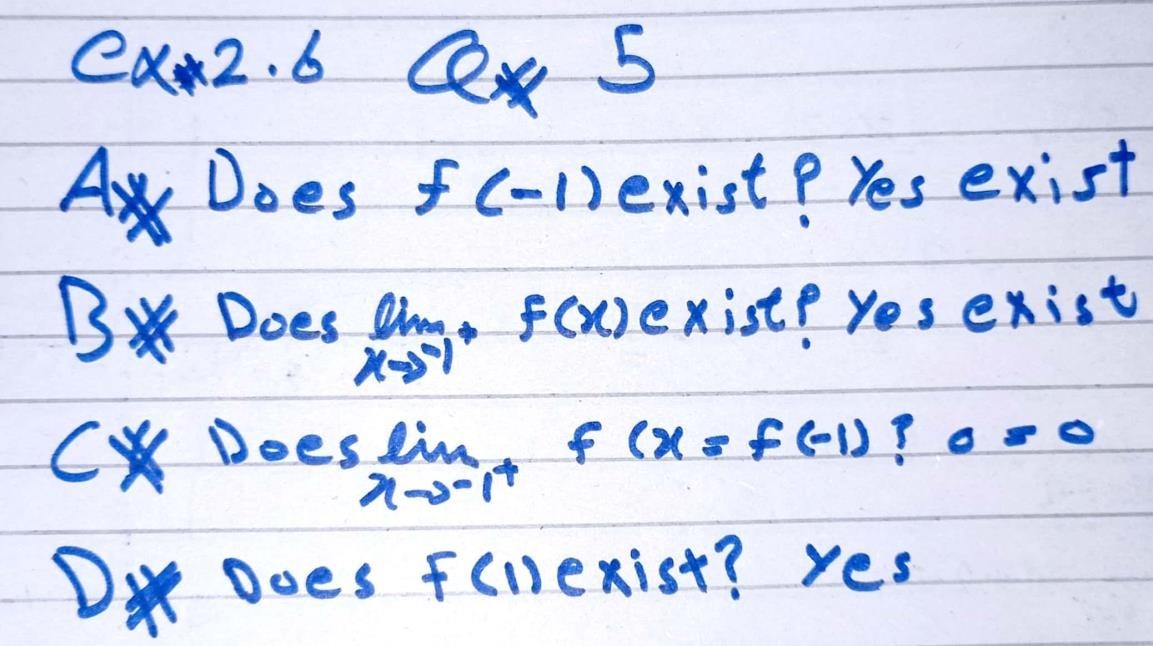 Ex#2.6 Q# 5
A# Does f(-1)exist? Yes exist
B# Does lim x→-1⁺ f(x)exist? Yes exist
C# Does lim x→-1⁺ f(x=f(-1)? 0=0
D# Does f(1)exist? Yes